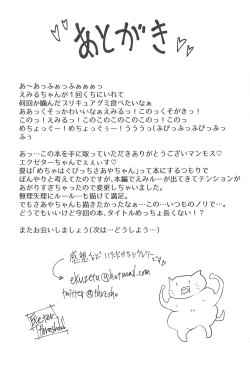 あとがき
あ～あっふぁっふぁぁぁっ
えみるちゃんが1回くちにいれて
何回か噛んだプリキュアグミ食べたいなぁ
ああっくそっかわいいなぁえみるっ!このっくそがきっ!
このっ!えみるっ!このこのこのこのこのっ!このっ
めちょっぐー!めちょっぐぅー!うううっ(ふびっふっふびっふっ
ふぅ
あっ…この本を手に取っていただきありがとうございマンモス♡
エクゼターちゃんでぇぇいす♡
夏は「めちゃはぐぴっちさあやちゃん」って本にするつもりで
ぼんやりと考えてたのですが、本編でえみるーが出てきてテンションが
あがりすぎちゃったので変更しちゃいました。
無理矢理にルールーも描けて満足。
でもさあやちゃんも描きたかったなぁ…この…いつものノリで…。
どうでもいいけど今回の本、タイトルめっちょ長くない!?
またお会いしましょう(次は…どうしよう…)
感想などいただけたらウレシーです
ekuzeta@hotmail.com
twitter@threshow